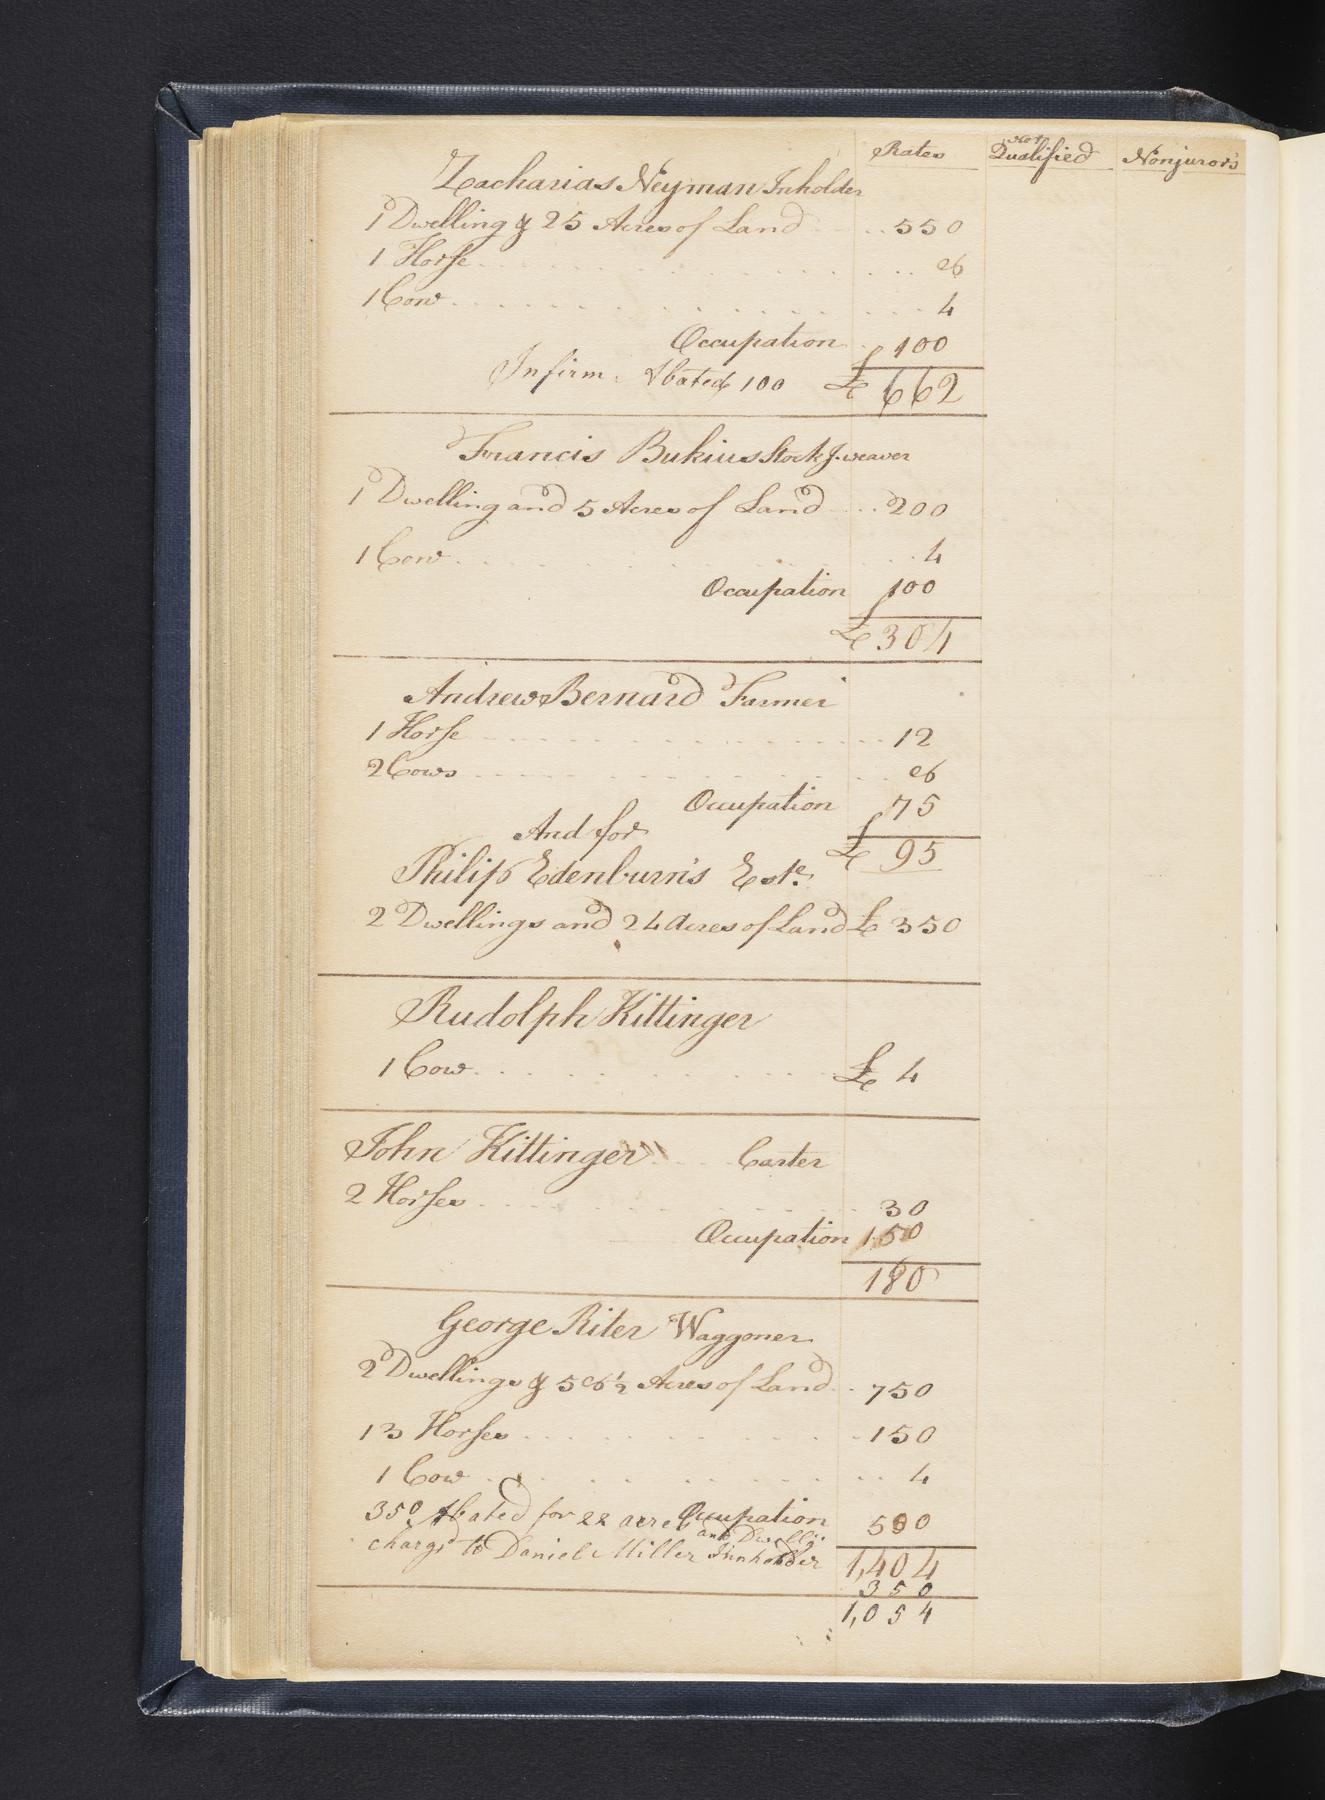 Rates Not Qualified Nonjuror's
Zacharias Neyman Inholder
1 Dwelling & 25 Acres of Land 550
1 Horse 8
1 Cow 4
Occupation 100
Infirm. Abated 100 £ 662
Francis Bukius Stock.g. weaver
1 Dwelling and 5 Acres of Land 200
1 Cow 4
Occupation 100
£ 304
Andrew Bernard Farmer
1 Horse 12
2 Cows 8
Occupation 75
And for £ 95
Philip Edenburn's Este.
2 Dwellings and 24 Acres of Land £ 350
Rudolph Kittinger
1 Cow £ 4
John Kittinger Carter
2 Horses 30
Occupation 150
180
George Riter Waggoner
2 Dwellings & 58½ Acres of Land 750
13 Horses 150
1 Cow 4
Occupation 500
350 Abated for 22 acres and Dwellg:
charg'd to Daniel Miller Innholder 1,404
350
1,054